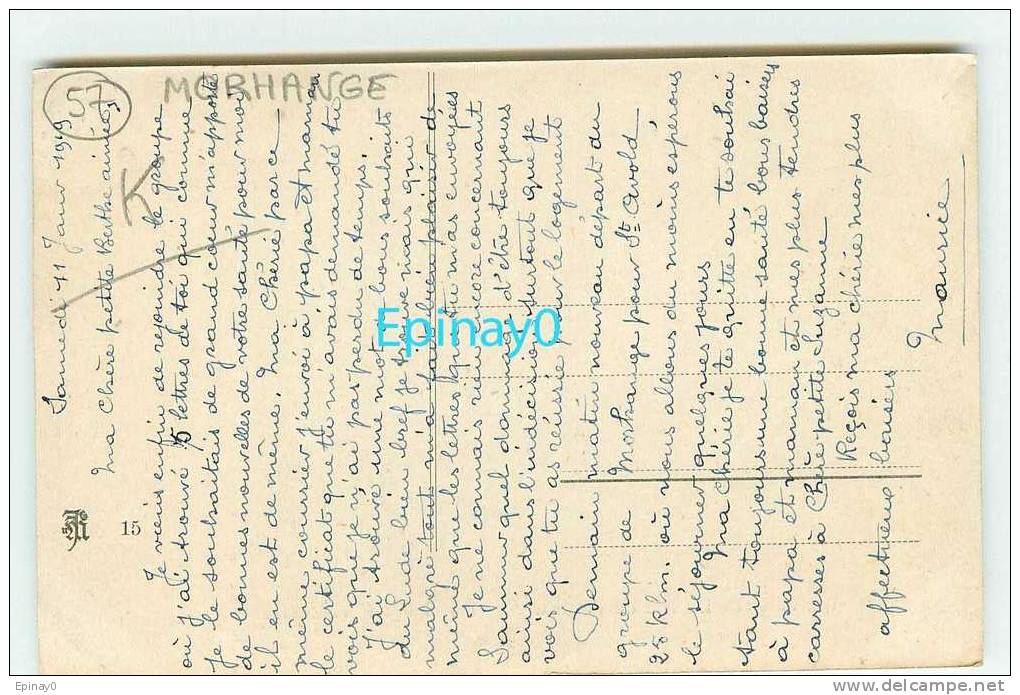 57
MORHANGE
Samedi 11 Janv. 1919
Ma chère petite Berthe aimée,
Je viens enfin de rejoindre le groupe
où j'ai trouvé 5 lettres de toi qui comme
je le souhaitais de grand cœur m'apporte
de bonnes nouvelles de votre santé pour moi
il en est de même. Ma Chérie par ce
même courrier j'envoi à papa et maman
le certificat que tu m'avais demandé tu
vois que je n'ai pas perdu de temps.
J'ai trouvé une mot bons souhaits
du Lude bien bref je trouve mais qui
malgré tout m'a fait bien plaisir de
même que les lettres que tu m'as envoyées
Je ne connais rien encore concernant
Saumur quel dommage d'être toujours
ainsi dans l'indécision surtout que je
vois que tu as réussie pour le logement
Demain matin nouveau départ du
groupe de Morhange pour St Avold
25 klm. où nous allons du moins espérons
le séjourner quelques jours
Ma Chérie je te quitte en te souhai
tant toujours une bonne santé bons baisers
à papa et maman et mes plus tendres
carresses à Chère petite Suzanne
Reçois ma chérie mes plus
affectueux baisers
Maurice
15
Epinay0
Epinay0
www.delcampe.net